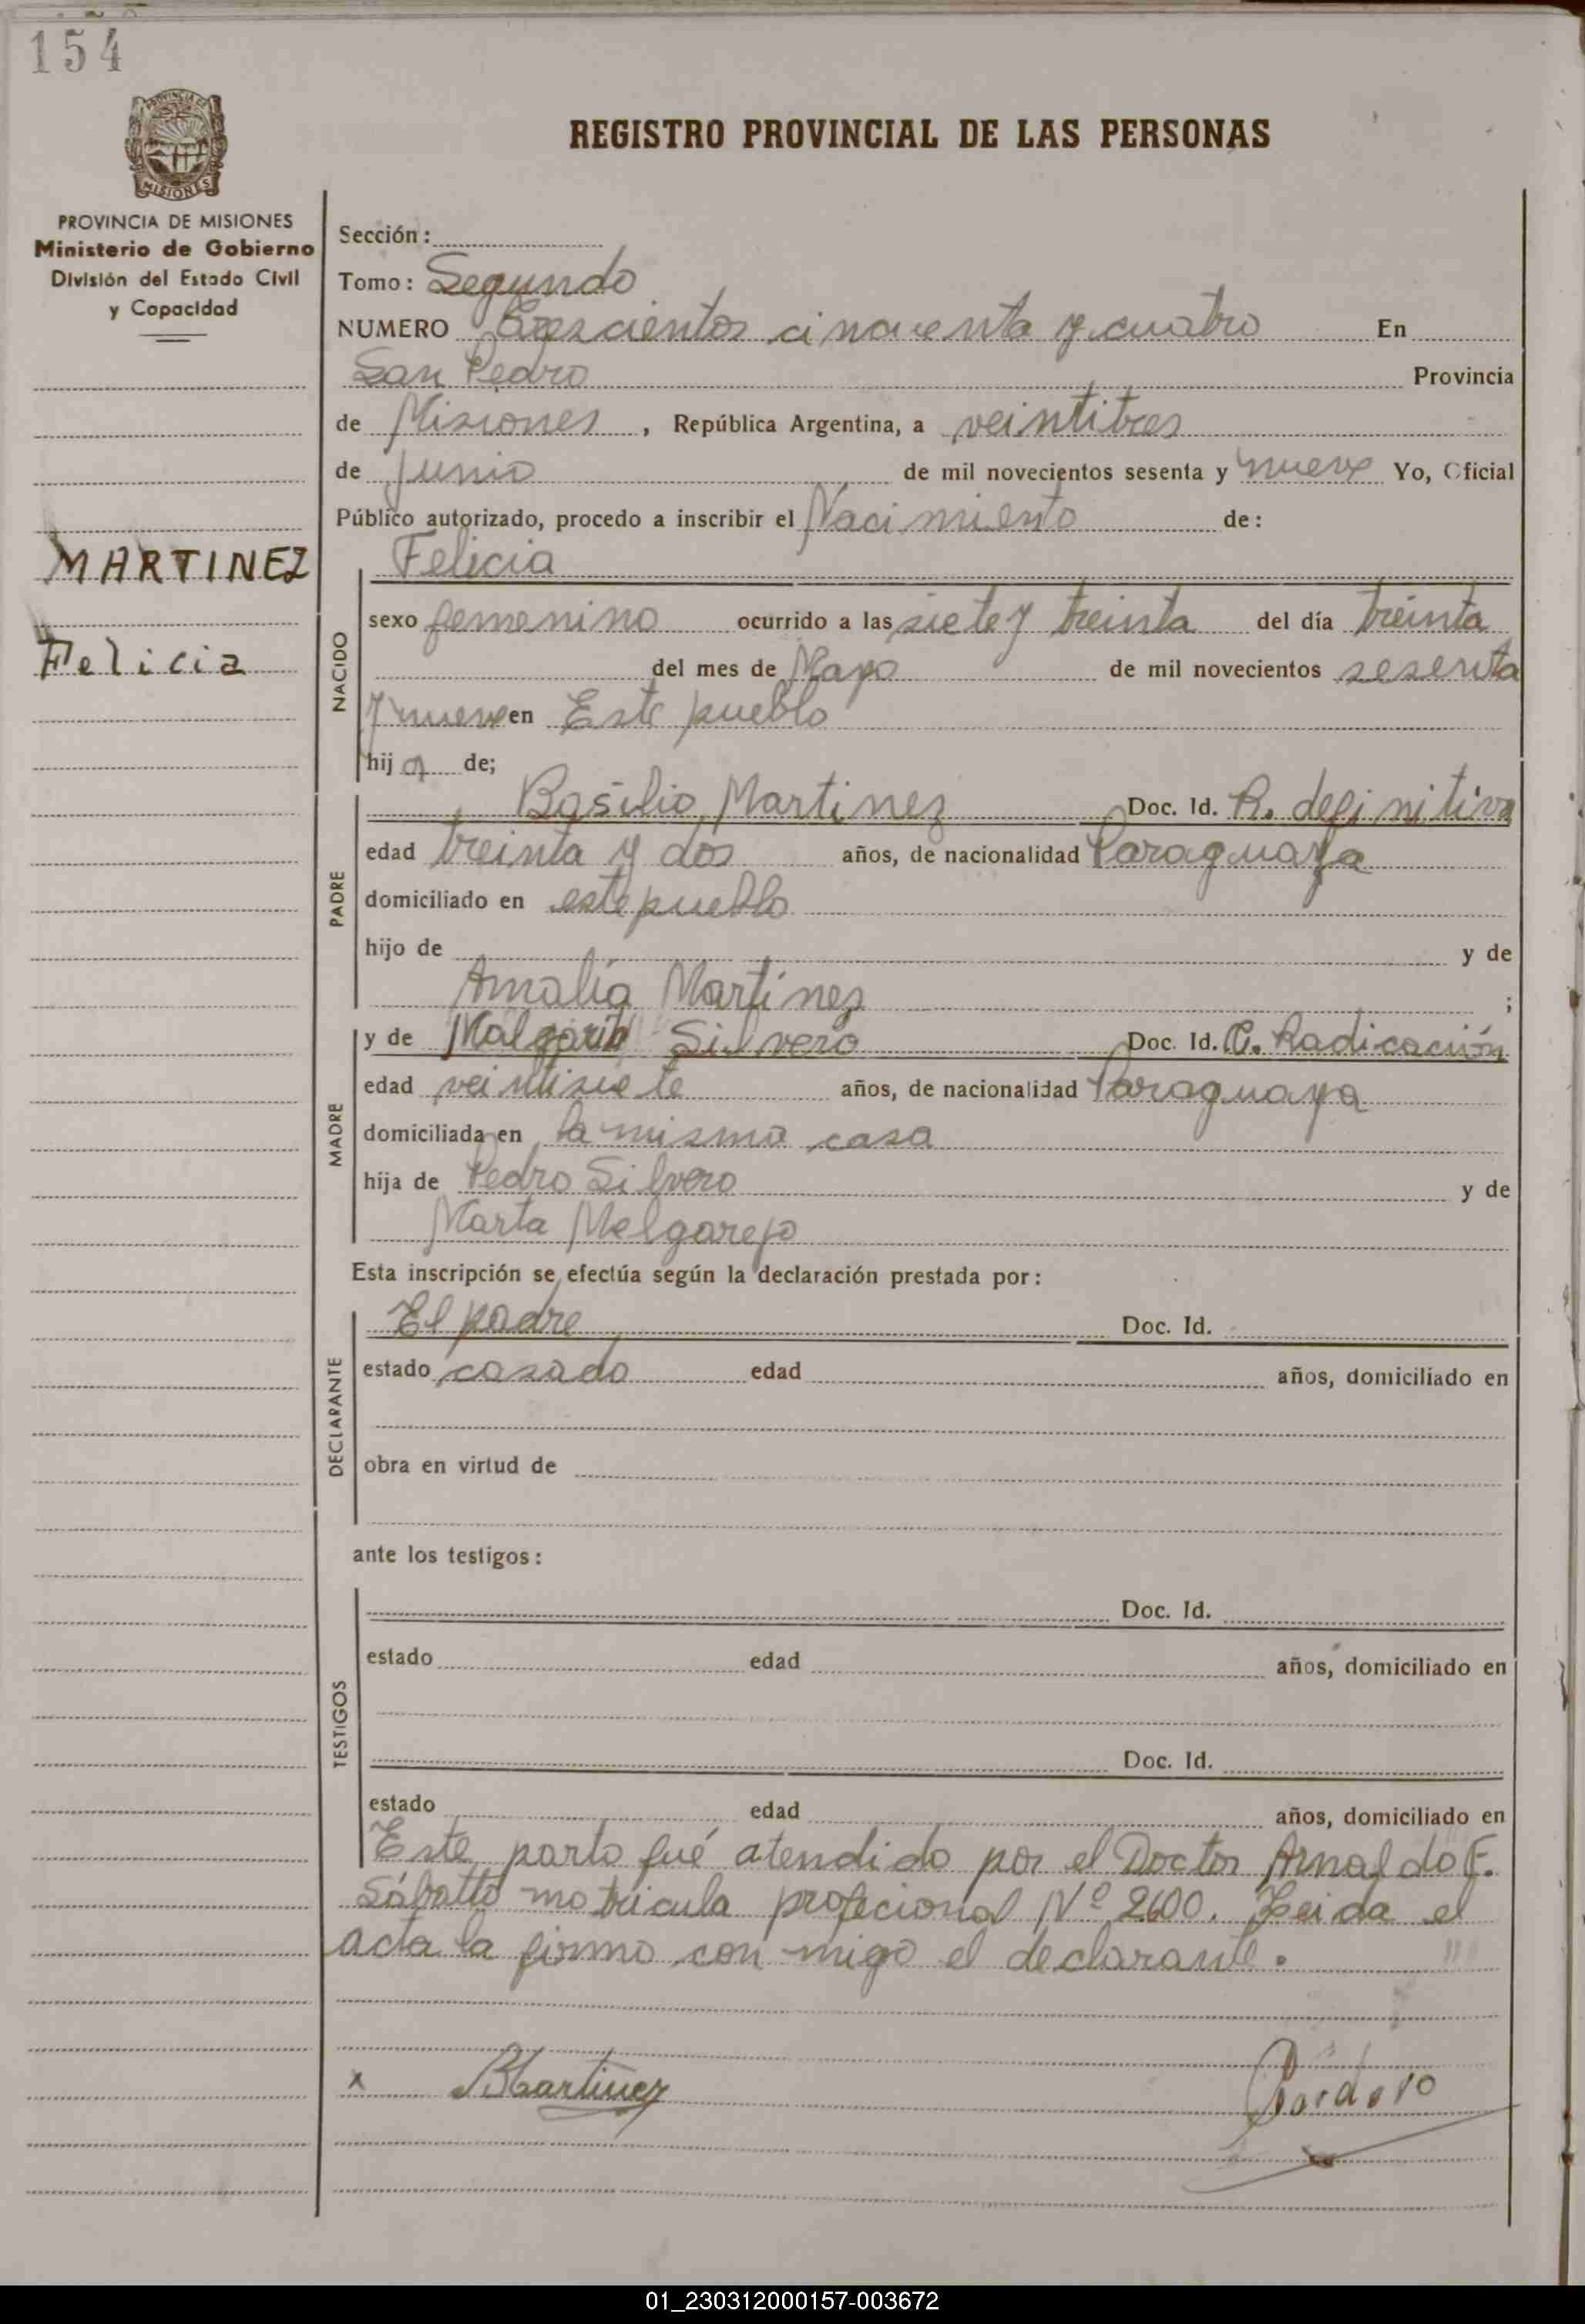 154
PROVINCIA DE MISIONES
Ministerio de Gobierno
División del Estado Civil
y Capacidad
MARTINEZ
Felicia
REGISTRO PROVINCIAL DE LAS PERSONAS
Sección:
Tomo: Segundo
NUMERO Trescientos cincuenta y cuatro En
San Pedro Provincia
de Misiones, República Argentina, a veintitres
de Junio de mil novecientos sesenta y nueve Yo, Oficial
Público autorizado, procedo a inscribir el Nacimiento de:
Felicia
NACIDO
sexo femenino ocurrido a las siete y treinta del día treinta
del mes de Mayo de mil novecientos sesenta
y nueve en Este pueblo
hija de;
PADRE
Basilio Martinez Doc. Id. R. definitiva
edad treinta y dos años, de nacionalidad Paraguaya
domiciliado en este pueblo
hijo de y de
Amalia Martinez ;
MADRE
y de Silvero Doc. Id. C. Radicación
edad veintisiete años, de nacionalidad Paraguaya
domiciliada en la misma casa
hija de Pedro Silvero y de
Marta Melgarejo
Esta inscripción se efectúa según la declaración prestada por:
DECLARANTE
El padre Doc. Id.
estado casado edad años, domiciliado en
obra en virtud de
ante los testigos:
TESTIGOS
Doc. Id.
estado edad años, domiciliado en
Doc. Id.
estado edad años, domiciliado en
Este parto fué atendido por el Doctor Arnaldo F.
Sábatto matricula profecional Nº 2600. Leida el
acta la firma con migo el declarante.
x BMartinez Cordero
01_230312000157-003672